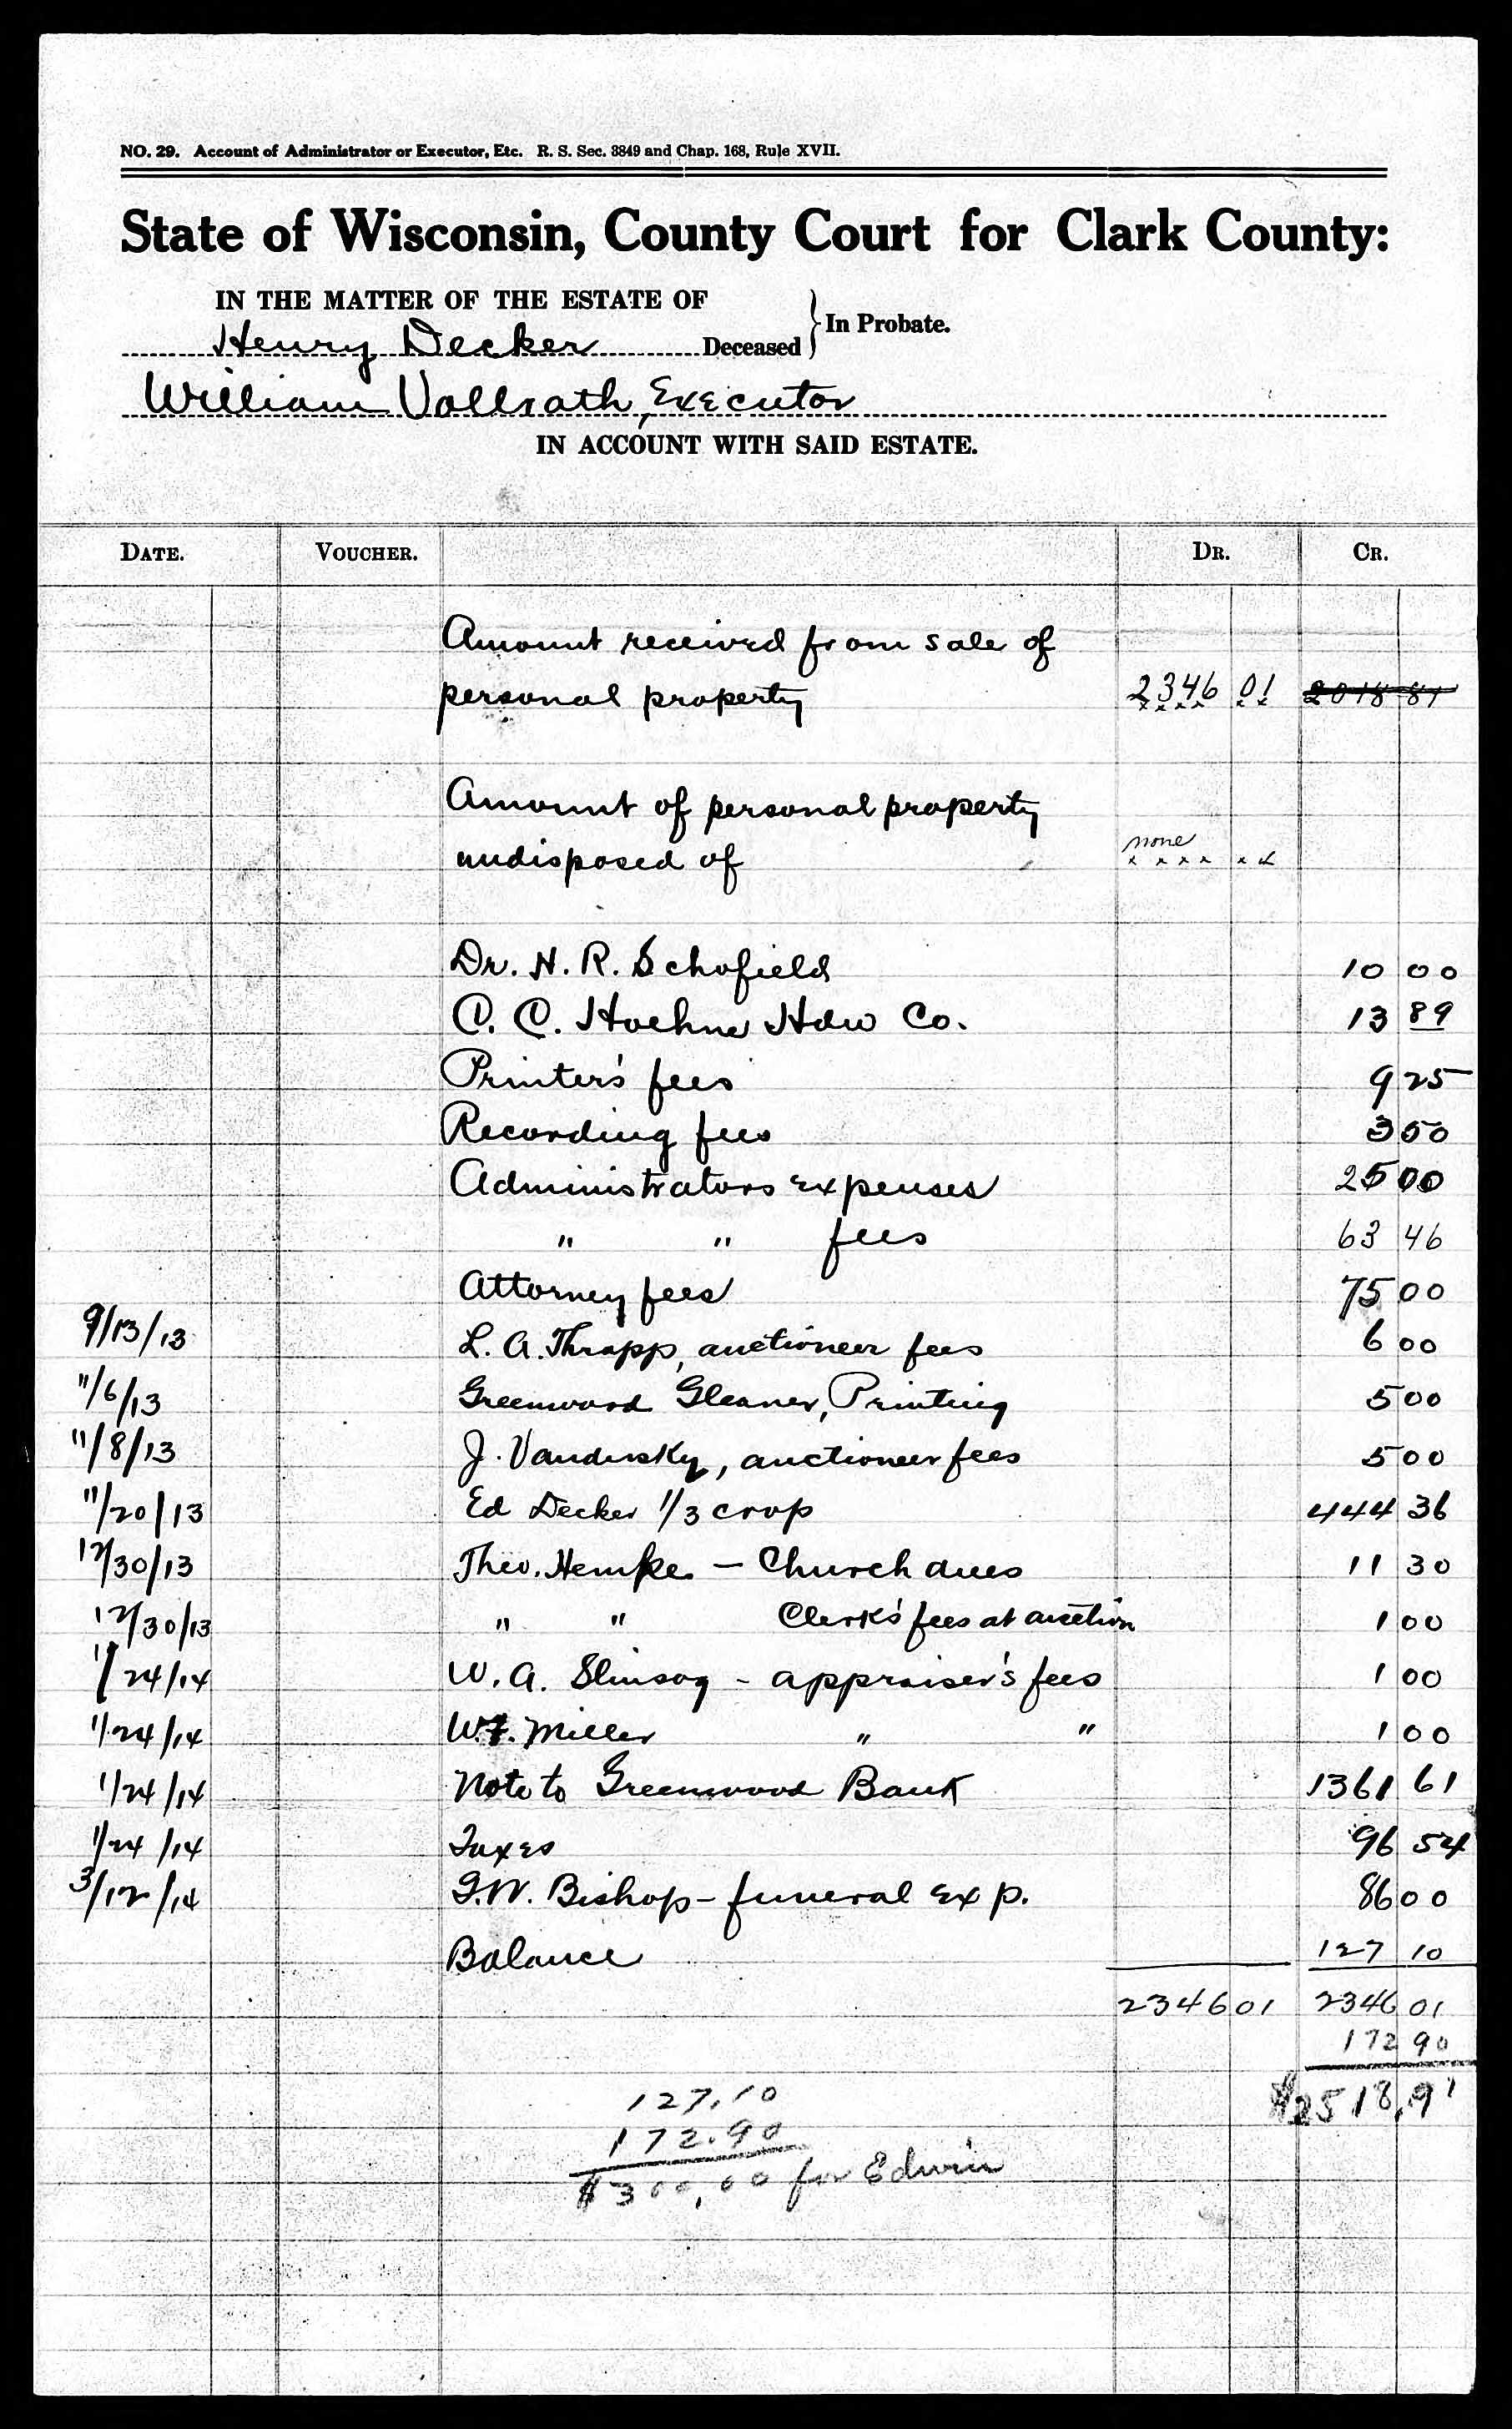 NO. 29. Account of Administrator or Executor, Etc. R. S. Sec. 3849 and Chap. 168, Rule XVII.
State of Wisconsin, County Court for Clark County:
IN THE MATTER OF THE ESTATE OF
Henry Decker Deceased } In Probate.
William Vollrath, Executor
IN ACCOUNT WITH SAID ESTATE.
DATE. VOUCHER. DR. CR.
Amount received from sale of
personal property 2346 01 2018 81
Amount of personal property none
undisposed of x x x x x x
Dr. H. R. Schofield 10 00
C. C. Hoehne Hdw Co. 13 89
Printer's fees 9 25
Recording fees 3 50
Administrators expenses 25 00
" " fees 63 46
Attorney fees 75 00
9/13/13 L. A. Thrapp, auctioneer fees 6 00
11/6/13 Greenwood Gleaner, Printing 5 00
11/8/13 J. Vandersky, auctioneer fees 5 00
11/20/13 Ed Decker 1/3 crop 444 36
12/30/13 Theo. Hemke - Church dues 11 30
12/30/13 " " Clerk's fees at auction 1 00
1/24/14 W. A. - appraiser's fees 1 00
1/24/14 W.F. Miller " " 1 00
1/24/14 Note to Greenwood Bank 1361 61
1/24/14 Taxes 96 54
3/12/14 Bishop - funeral exp. 86 00
Balance 127 10
2346 01 2346 01
172 90
$2518.91
127.10
172.90
$300.00 for Edwin